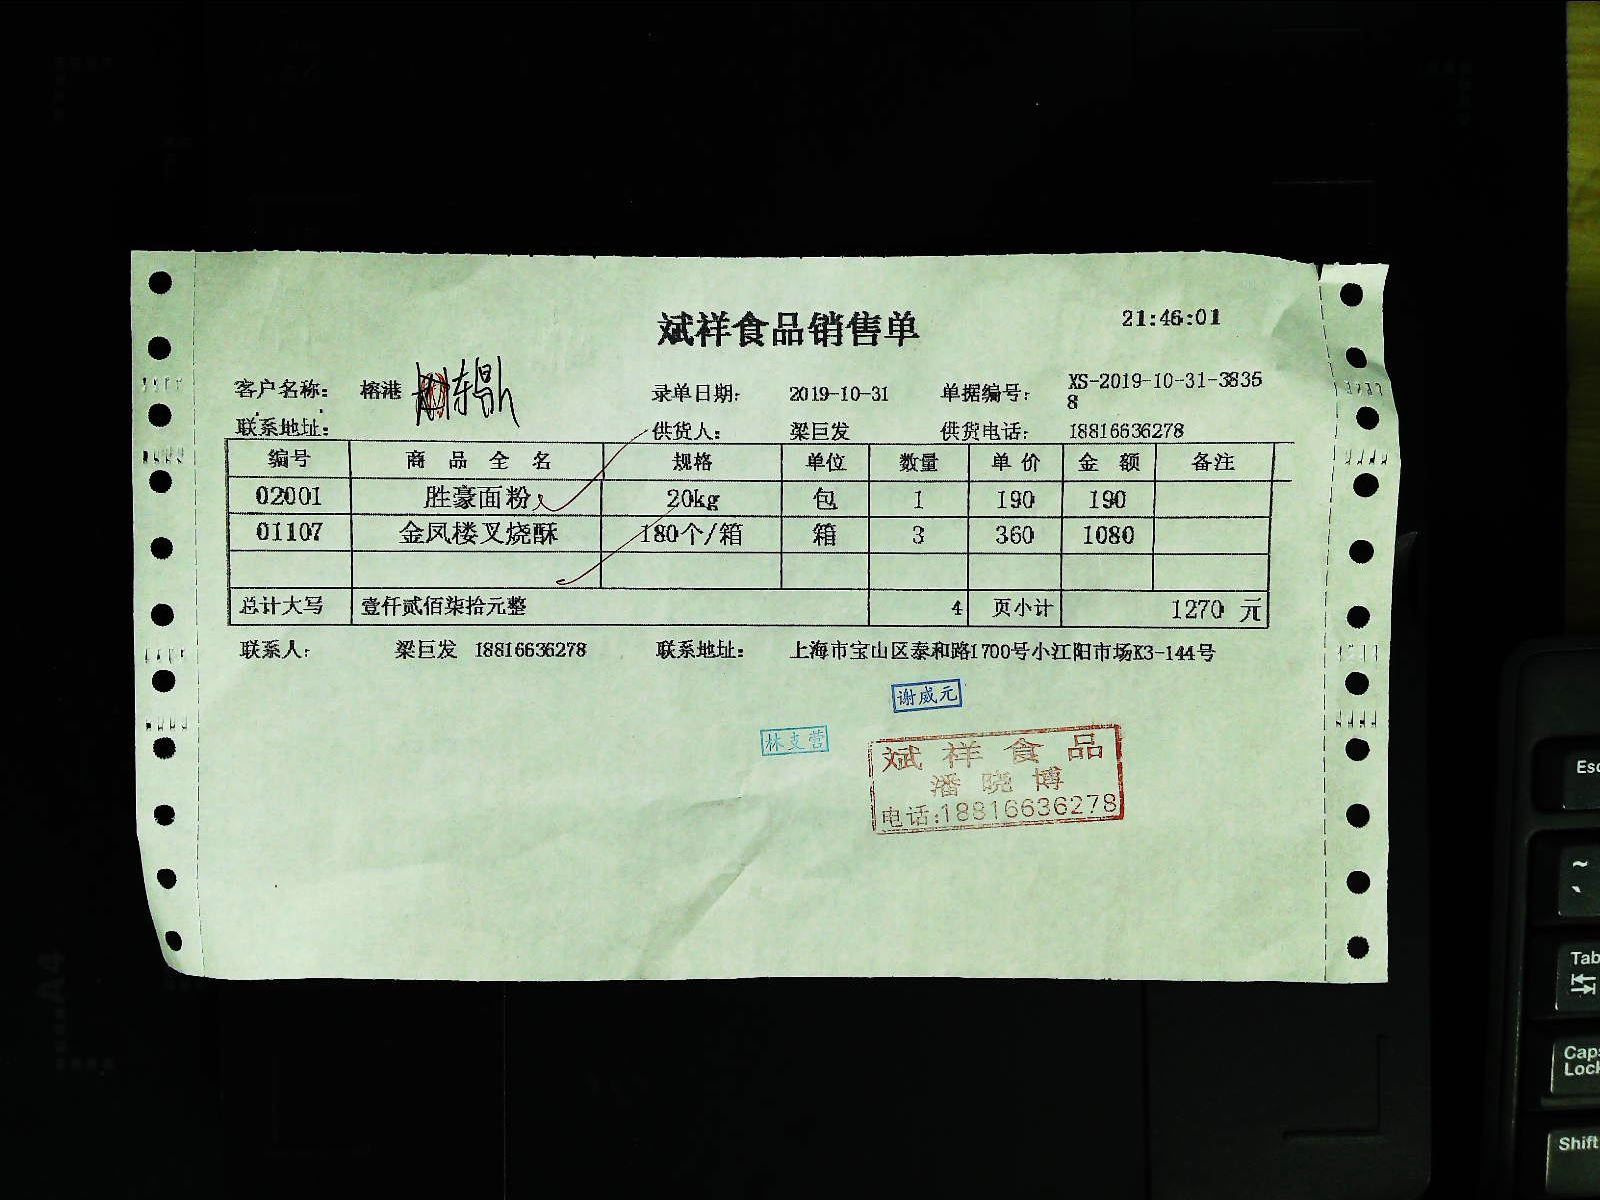 斌祥食品销售单
21:46:01
客户名称： 榕港 录单日期： 2019-10-31 单据编号： XS-2019-10-31-3835
8
联系地址： 供货人： 梁巨发 供货电话： 18816636278
编号 商 品 全 名 规格 单位 数量 单 价 金 额 备注
02001 胜豪面粉 20kg 包 1 190 190
01107 金凤楼叉烧酥 180个/箱 箱 3 360 1080
总计大写 壹仟贰佰柒拾元整 4 页小计 1270 元
联系人： 梁巨发 18816636278 联系地址： 上海市宝山区泰和路1700号小江阳市场K3-144号
谢威元
林支营
斌 祥 食 品
潘 晓 博
电话:18816636278
Esc
~
`
Tab
Caps
Lock
Shift